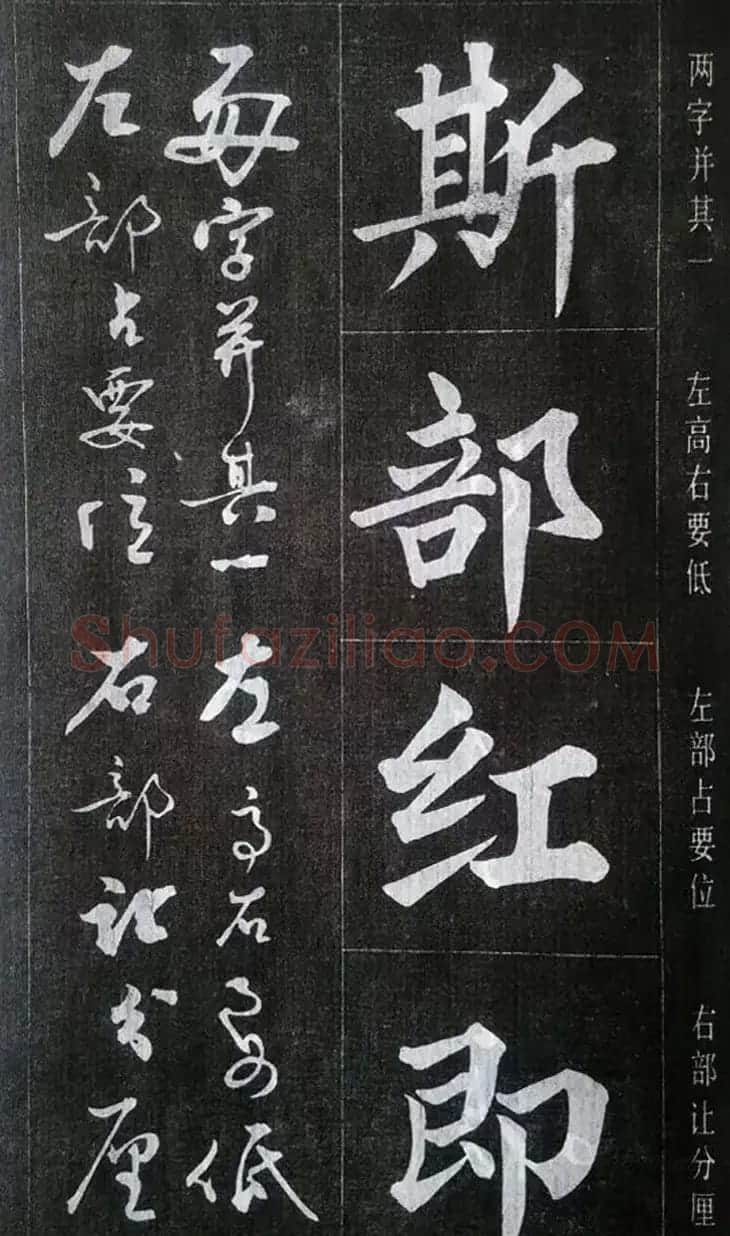 两字并其一 左高右要低 左部占要位 右部让分厘
斯部红即
两字并其一 左高右要低
左部占要位 右部让分厘
Shufaziliao.COM